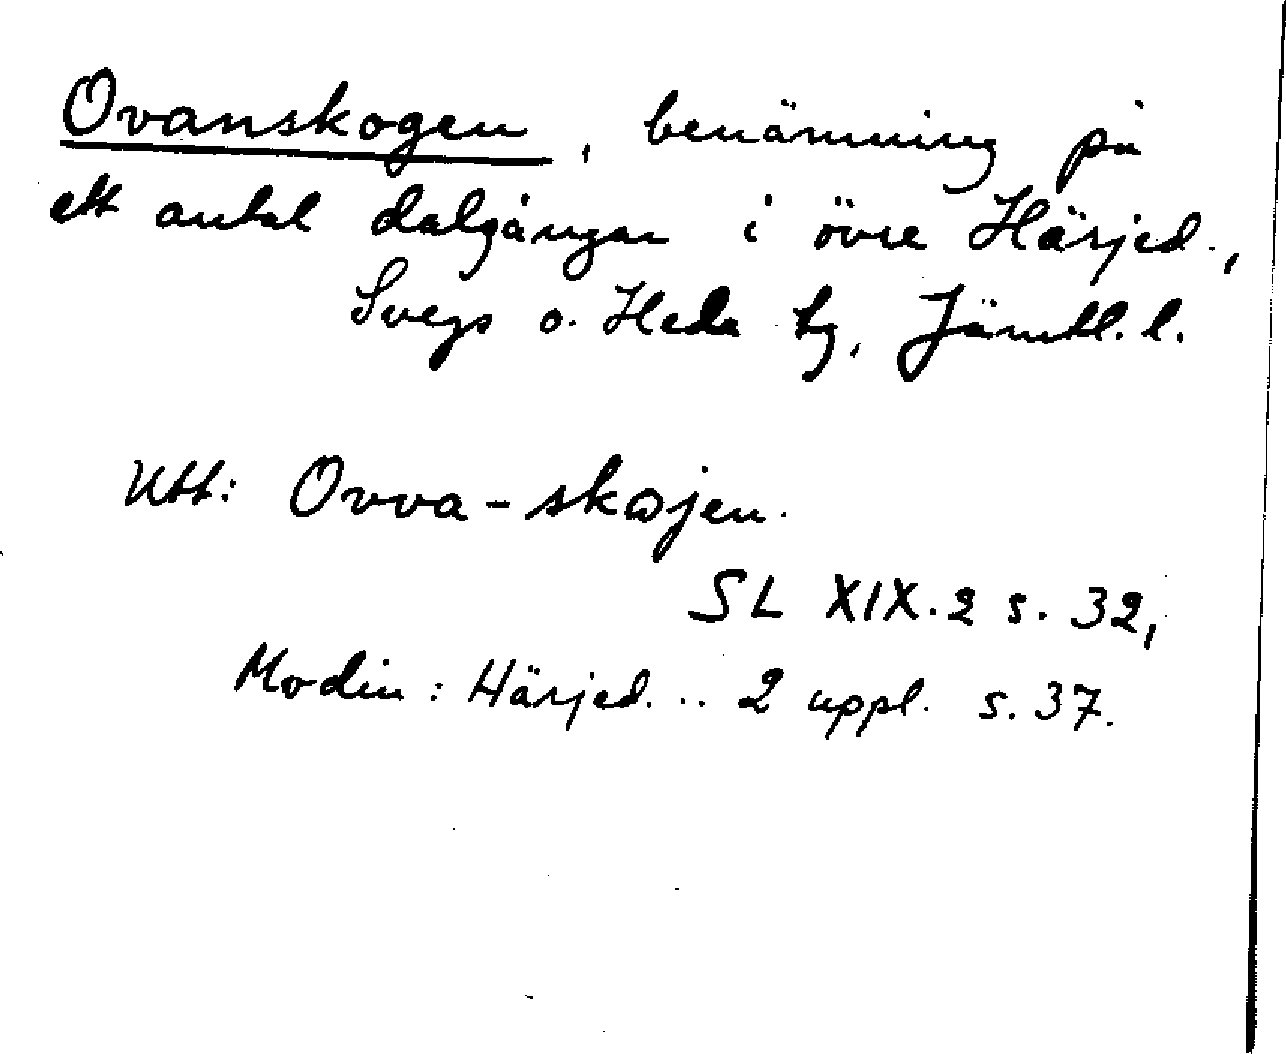 Ovanskogen, benämning på
ett antal dalgångar i övre Härjed.,
Svegs o. Heda tg, Jämtl. l.
Utt: Ovva-skojen.
SL XIX.2 s. 32,
Modin: Härjed... 2 uppl. s. 37.